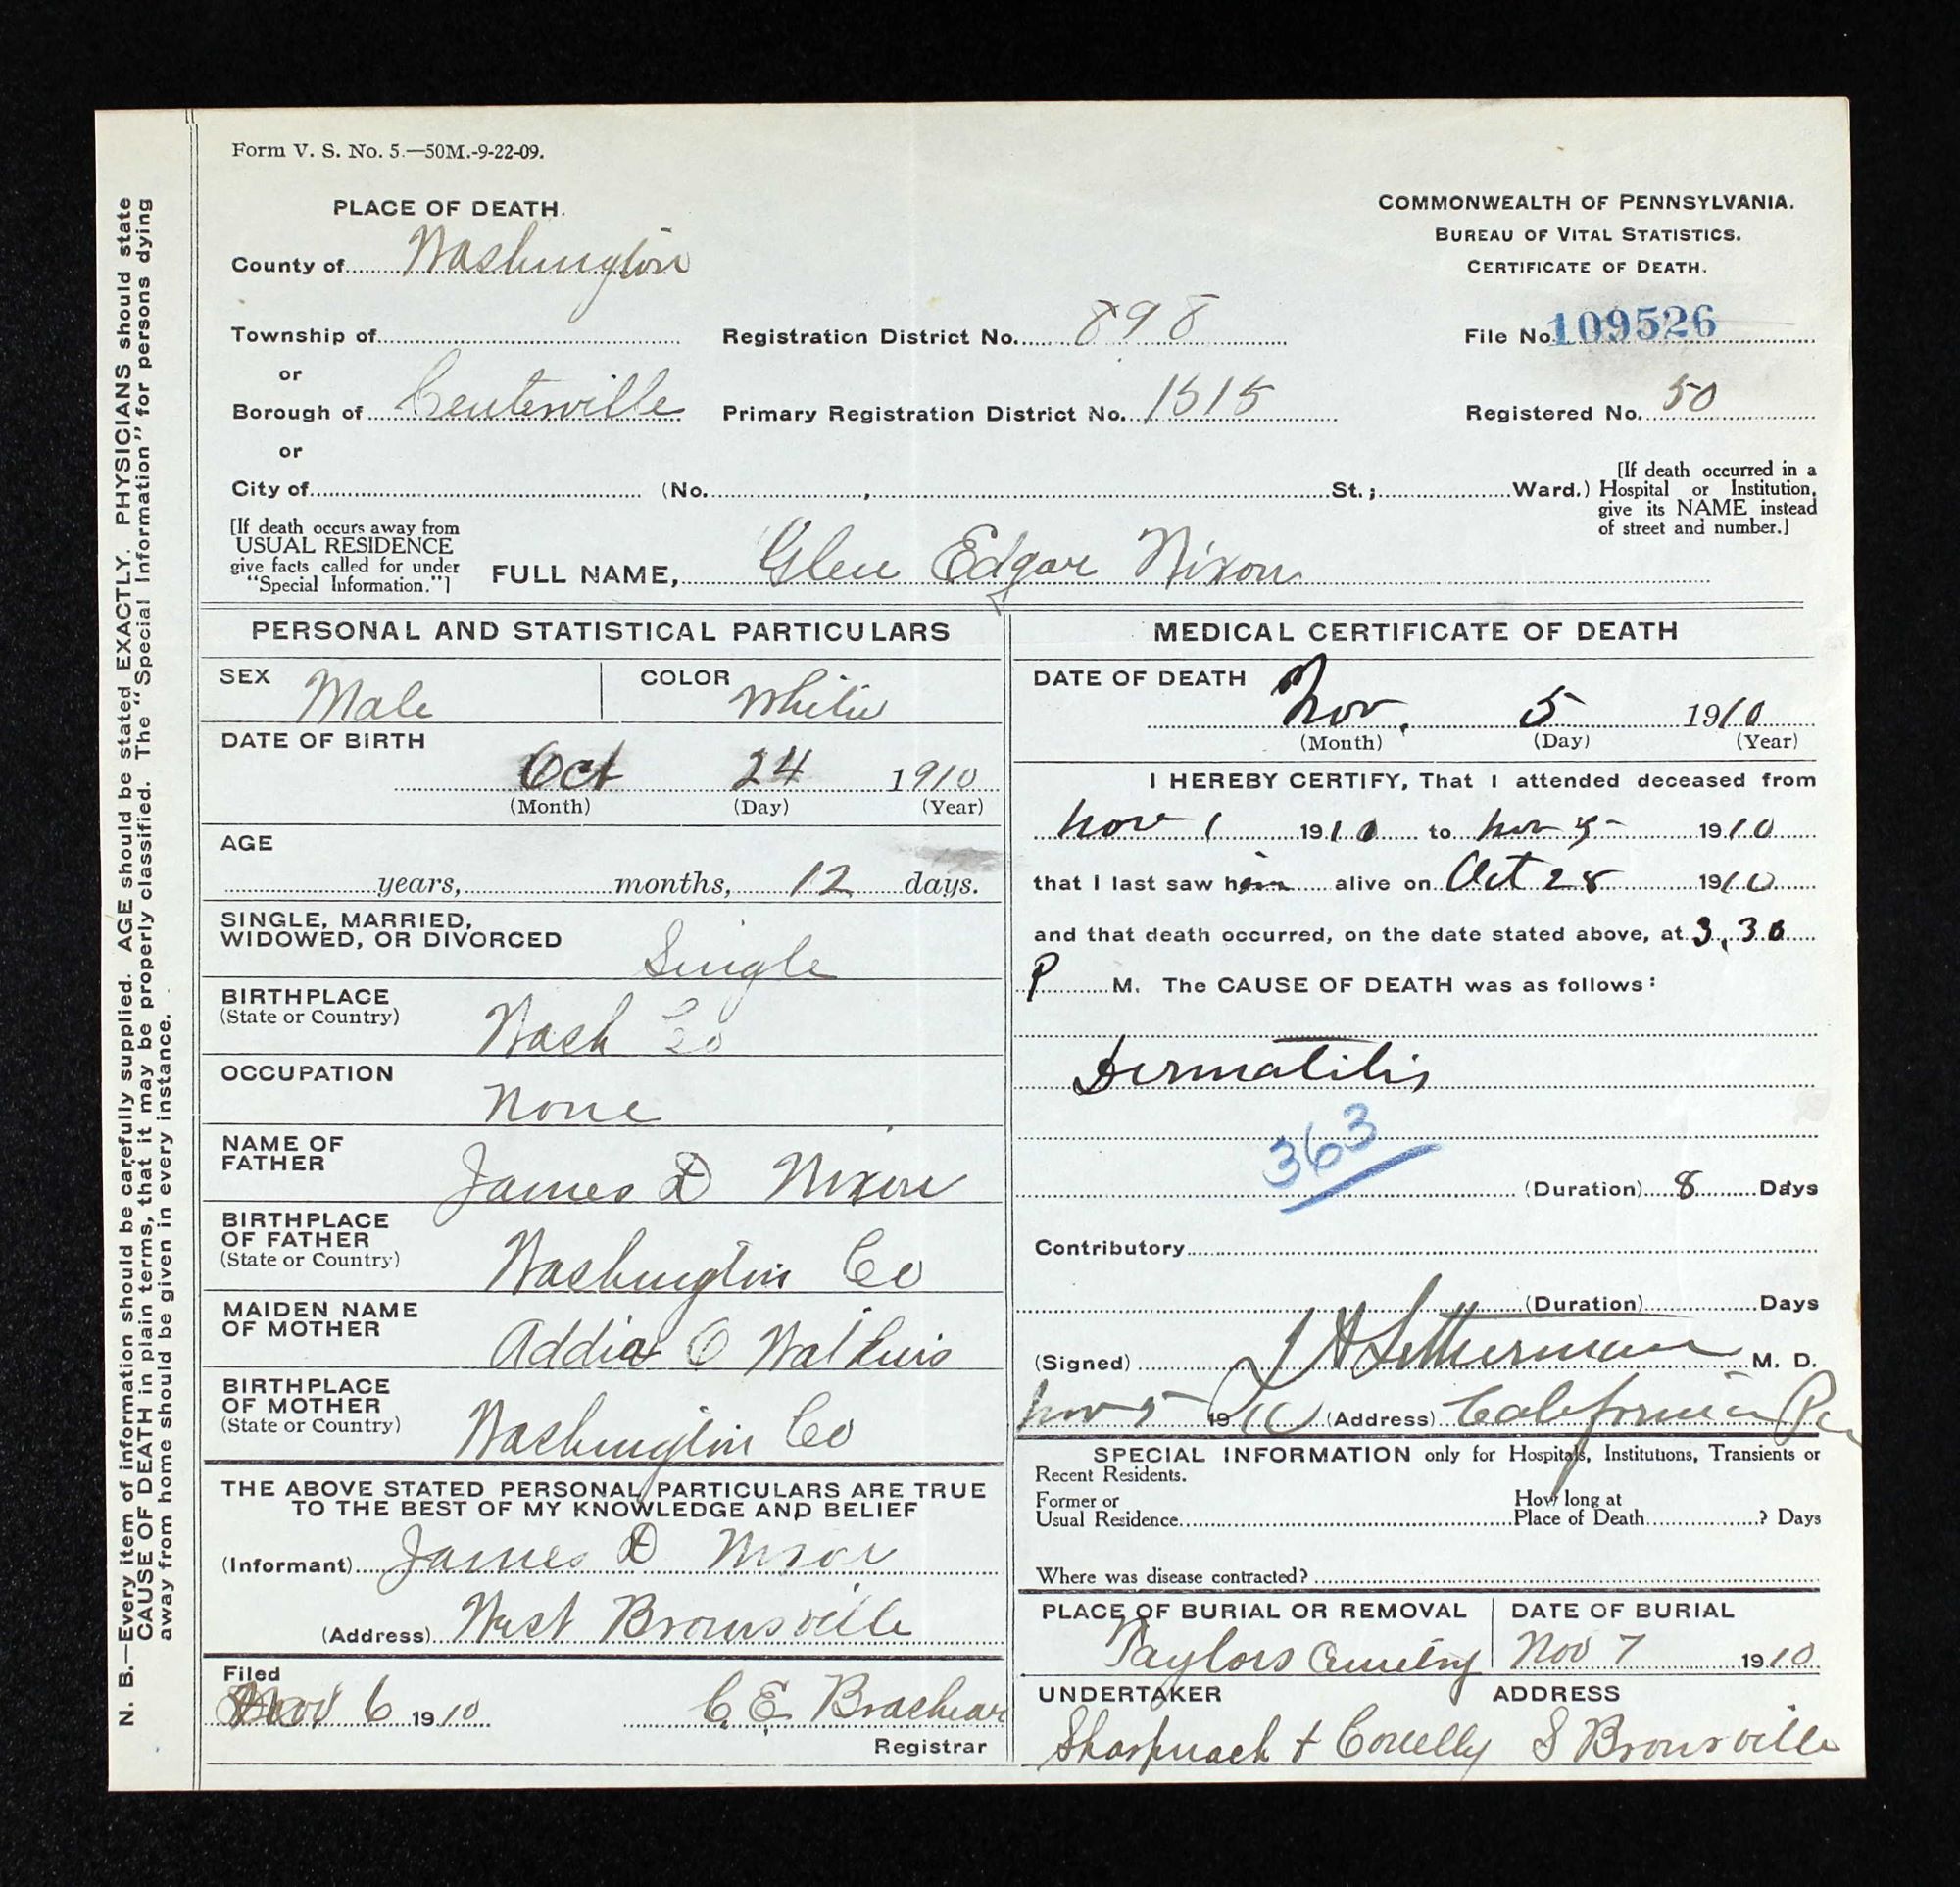 Form V. S. No. 5.—50M.-9-22-09.
PLACE OF DEATH.
County of Washington
Township of
or
Borough of Centerville
or
City of (No. , St.; Ward.)
COMMONWEALTH OF PENNSYLVANIA.
BUREAU OF VITAL STATISTICS.
CERTIFICATE OF DEATH.
Registration District No. 898
File No. 109526
Primary Registration District No. 1515
Registered No. 50
[If death occurred in a
Hospital or Institution,
give its NAME instead
of street and number.]
[If death occurs away from
USUAL RESIDENCE
give facts called for under
"Special Information."]
FULL NAME, Glen Edgar Nixon
PERSONAL AND STATISTICAL PARTICULARS
SEX Male
COLOR White
DATE OF BIRTH
Oct 24 1910
(Month) (Day) (Year)
AGE
years, months, 12 days.
SINGLE, MARRIED,
WIDOWED, OR DIVORCED
Single
BIRTHPLACE
(State or Country)
Wash Co
OCCUPATION
None
NAME OF
FATHER
James D Nixon
BIRTHPLACE
OF FATHER
(State or Country)
Washington Co
MAIDEN NAME
OF MOTHER
Addia O Watkins
BIRTHPLACE
OF MOTHER
(State or Country)
Washington Co
THE ABOVE STATED PERSONAL PARTICULARS ARE TRUE
TO THE BEST OF MY KNOWLEDGE AND BELIEF
(Informant) James D Nixon
(Address) West Brownsville
Filed
Nov 6 1910 C. E. Brashear
Registrar
MEDICAL CERTIFICATE OF DEATH
DATE OF DEATH
Nov. 5 1910
(Month) (Day) (Year)
I HEREBY CERTIFY, That I attended deceased from
Nov 1 1910 to Nov 5 1910
that I last saw him alive on Oct 28 1910
and that death occurred, on the date stated above, at 3.30
P M. The CAUSE OF DEATH was as follows:
Dermatitis
363
(Duration) 8 Days
Contributory
(Duration) Days
(Signed) J A Letherman M. D.
Nov 5 1910 (Address) California Pa
SPECIAL INFORMATION only for Hospitals, Institutions, Transients or
Recent Residents.
Former or
Usual Residence
How long at
Place of Death ? Days
Where was disease contracted?
PLACE OF BURIAL OR REMOVAL
Taylors Cemetery
DATE OF BURIAL
Nov 7 1910
UNDERTAKER
Sharpnack + Conelly
ADDRESS
S Brownsville
N. B.—Every item of information should be carefully supplied. AGE should be stated EXACTLY. PHYSICIANS should state
CAUSE OF DEATH in plain terms, that it may be properly classified. The "Special Information" for persons dying
away from home should be given in every instance.